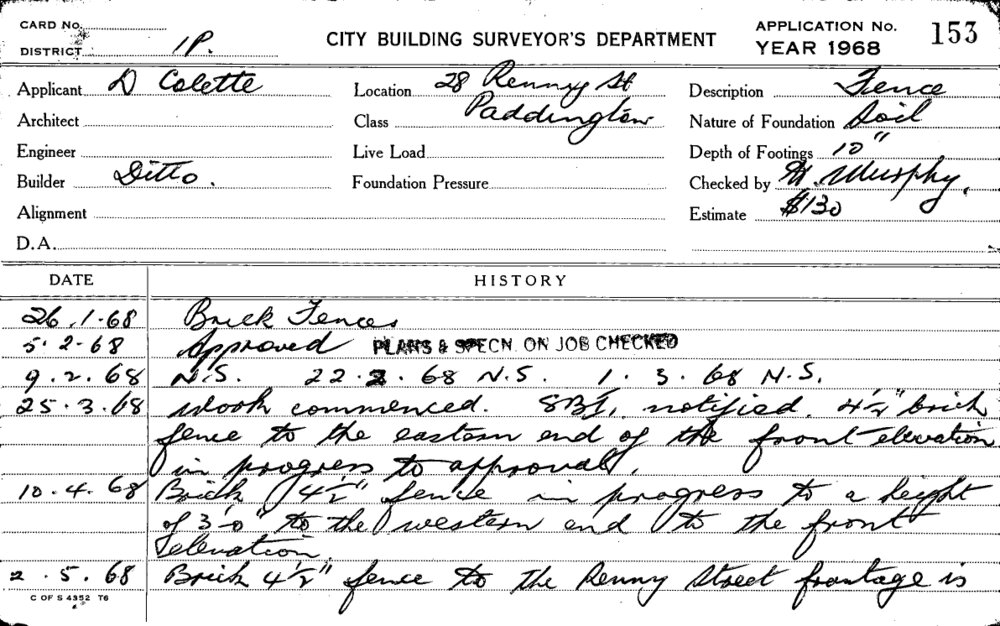 CARD No.
DISTRICT 1P.
CITY BUILDING SURVEYOR'S DEPARTMENT
APPLICATION No. 153
YEAR 1968
Applicant D Colette
Location 28 Renny St
Description Fence
Architect
Class Paddington
Nature of Foundation Soil
Engineer
Live Load
Depth of Footings 10"
Builder Ditto.
Foundation Pressure
Checked by H. Murphy.
Alignment
Estimate $130
D.A.
DATE HISTORY
26.1.68 Brick Fences
5.2.68 Approved PLANS & SPECN. ON JOB CHECKED
9.2.68 N.S. 22.2.68 N.S. 1.3.68 N.S.
25.3.68 Work commenced. SBI. notified. 4½" brick
fence to the eastern end of the front elevation
in progress to approval.
10.4.68 Brick 4½" fence in progress to a height
of 3'0" to the western end to the front
elevation.
2.5.68 Brick 4½" fence to the Renny Street frontage is
C OF S 4352 T6